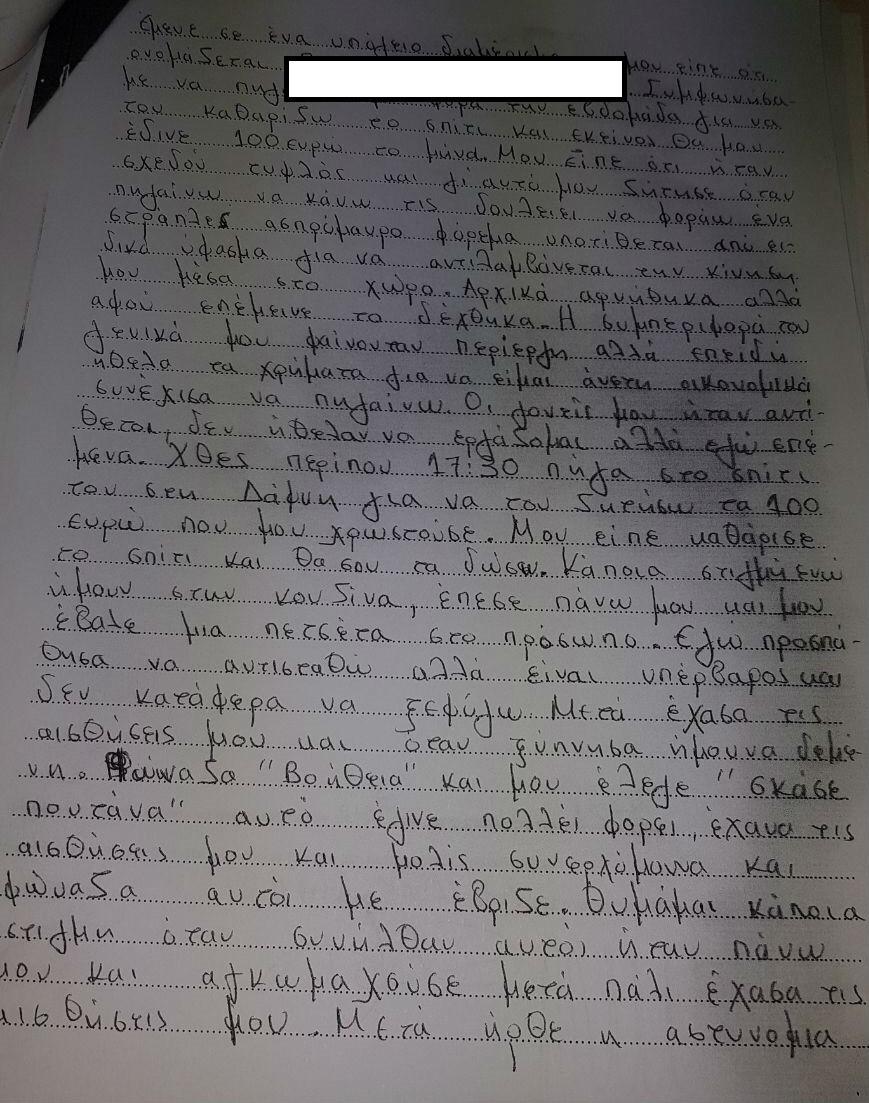 έμενε σε ένα υπόγειο διαμέρισμα μου είπε ότι
ονομάζεται Συμφωνήσα-
με να πηγ φορά την εβδομάδα για να
του καθαρίζω το σπίτι και εκείνος θα μου
έδινε 100 ευρώ το μήνα. Μου είπε ότι ήταν
σχεδόν τυφλός και γι αυτό μου ζήτησε όταν
πηγαίνω να κάνω τις δουλειει να φοράω ένα
στράπλες ασπρόμαυρο φόρεμα υποτίθεται από ει-
δικό ύφασμα για να αντιλαμβάνεται την κίνηση
μου μέσα στο χώρο. Αρχικά αρνήθηκα αλλά
αφού επέμεινε το δέχθηκα. Η συμπεριφορά του
γενικά μου φαίνονταν περίεργη αλλά επειδή
ήθελα τα χρήματα για να είμαι άνετη οικονομικά
συνέχισα να πηγαίνω. Οι γονείς μου ήταν αντί-
θετοι, δεν ήθελαν να εργάζομαι αλλά εγώ επέ-
μενα. Χθες περίπου 17:30 πήγα στο σπίτι
του στη Δάφνη για να του ζητήσω τα 100
ευρώ που μου χρωστούσε. Μου είπε καθάρισε
το σπίτι και θα σου τα δώσω. Κάποια στιγμή ενώ
ήμουν στην κουζίνα, έπεσε πάνω μου και μου
έβαλε μια πετσέτα στο πρόσωπο. Εγώ προσπά-
θησα να αντισταθώ αλλά είναι υπέρβαρος και
δεν κατάφερα να ξεφύγω. Μετά έχασα τις
αισθήσεις μου και όταν ξύπνησα ήμουνα δεμέ-
νη. Φώναζα "Βοήθεια" και μου έλεγε "σκάσε
πουτανα" αυτό έγινε πολλέι φορει, έχανα τις
αισθήσεις μου και μόλις συνερχόμουνα και
φώναζα αυτόι με έβριζε. Θυμάμαι κάποια
στιγμη όταν συνήλθαν αυτόι ήταν πάνω
μου και αγκωμαχούσε μετά πάλι έχασα τις
αισθήσεις μου. Μετά ήρθε η αστυνομια